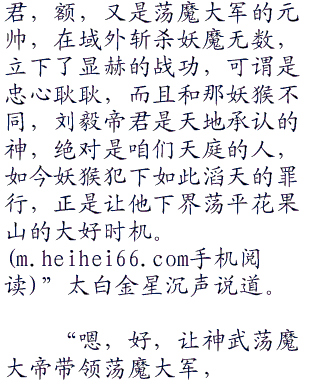 君，额，又是荡魔大军的元
帅，在域外斩杀妖魔无数，
立下了显赫的战功，可谓是
忠心耿耿，而且和那妖猴不
同，刘毅帝君是天地承认的
神，绝对是咱们天庭的人，
如今妖猴犯下如此滔天的罪
行，正是让他下界荡平花果
山的大好时机。
(m.heihei66.com手机阅
读)”太白金星沉声说道。
“嗯，好，让神武荡魔
大帝带领荡魔大军，